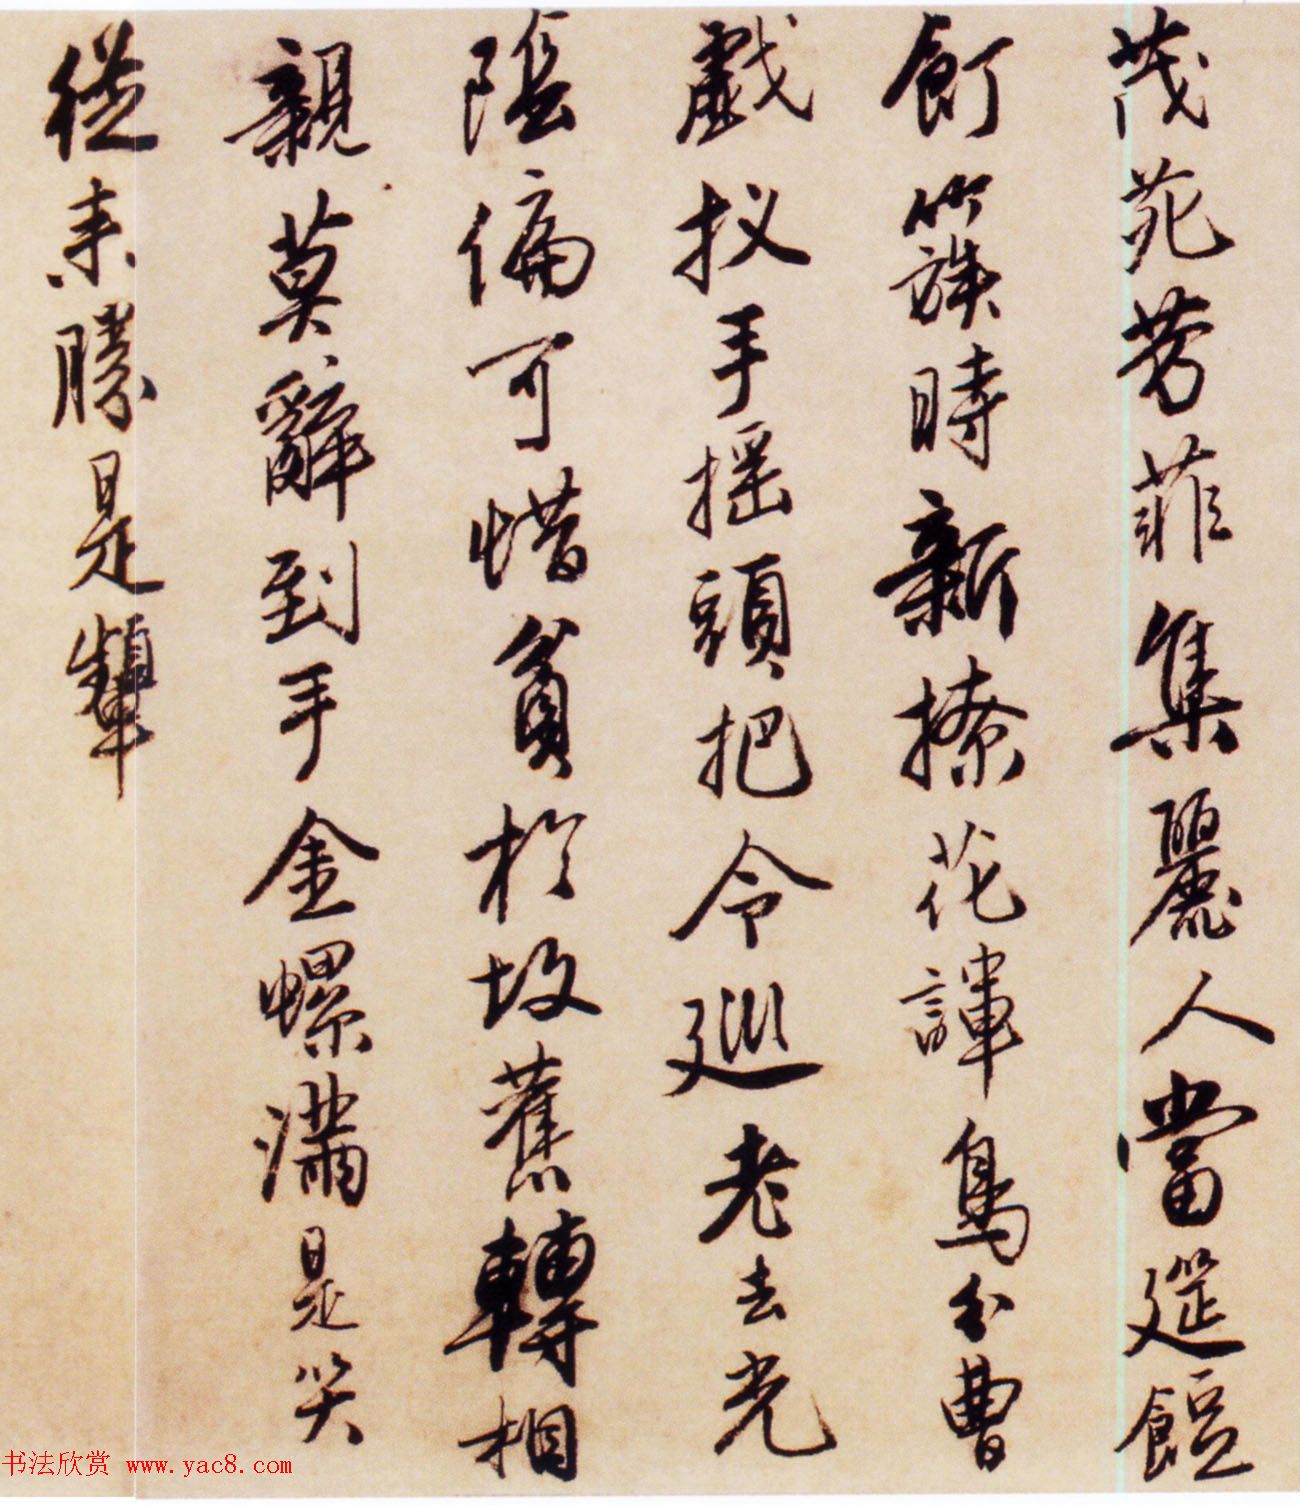 茂苑芳菲集麗人當筵餖
飣簇時新撩花譁鳥分曹
戲扠手搖頭把令巡老去光
陰偏可惜貧於故舊轉相
親莫辭到手金螺滿是笑
從來勝是顰
书法欣赏 www.yac8.com